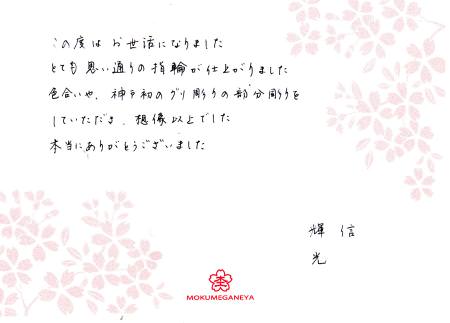 この度は お世話になりました
とても思い通りの指輪が仕上がりました
色合いや、神戸初のグリ彫りの部分彫りを
していただき、想像以上でした
本当にありがとうございました
輝 信
光
杢
MOKUMEGANEYA